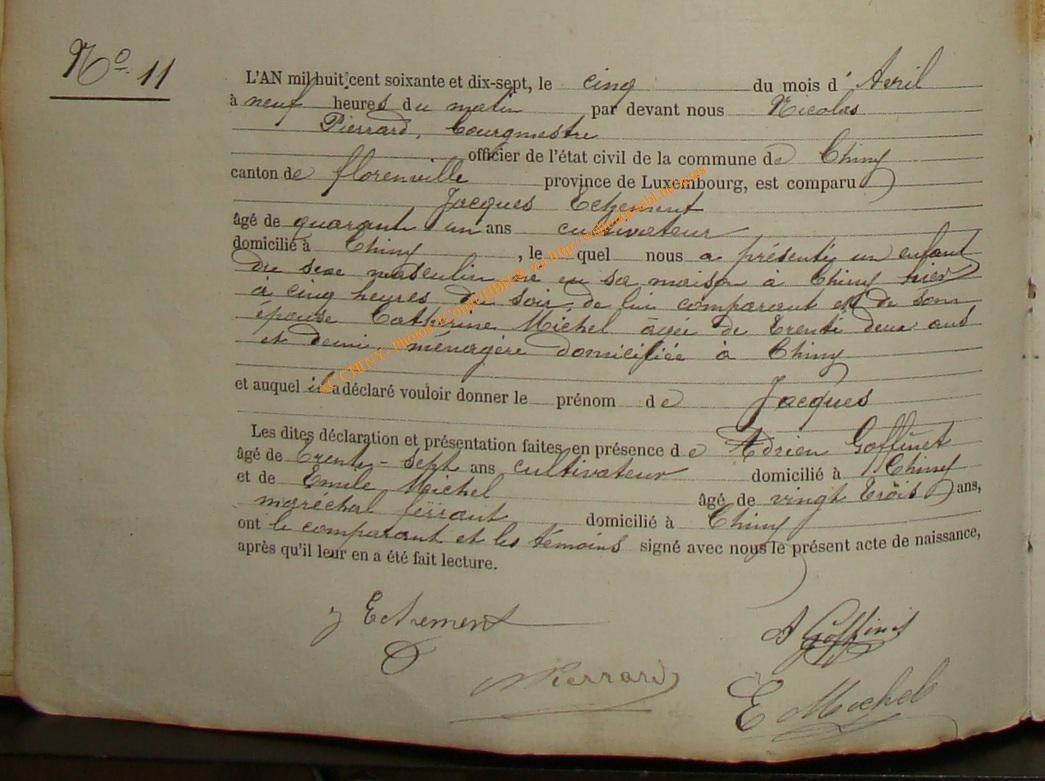 Nº 11
L'AN mil huit cent soixante et dix-sept, le cinq du mois d' Avril
à neuf heures du matin par devant nous Nicolas
Pierrard, bourgmestre
officier de l'état civil de la commune de Chiny
canton de florenville province de Luxembourg, est comparu
Jacques Echement
âgé de quarante un ans cultivateur
domicilié à Chiny, le quel nous a présenté un enfant
du sexe masculin né en sa maison à Chiny hier
à cinq heures du soir de lui comparant et de son
épouse Catherine Michel âgée de trente deux ans
et demi, ménagère domiciliée à Chiny
et auquel il a déclaré vouloir donner le prénom de Jacques
Les dites déclaration et présentation faites en présence de Adrien Goffinet
âgé de trente-sept ans cultivateur domicilié à Chiny
et de Emile Michel âgé de vingt trois ans,
maréchal ferrant domicilié à Chiny
ont le comparant et les témoins signé avec nous le présent acte de naissance,
après qu'il leur en a été fait lecture.
J Echement
A Goffinet
N Pierrard
E Michel